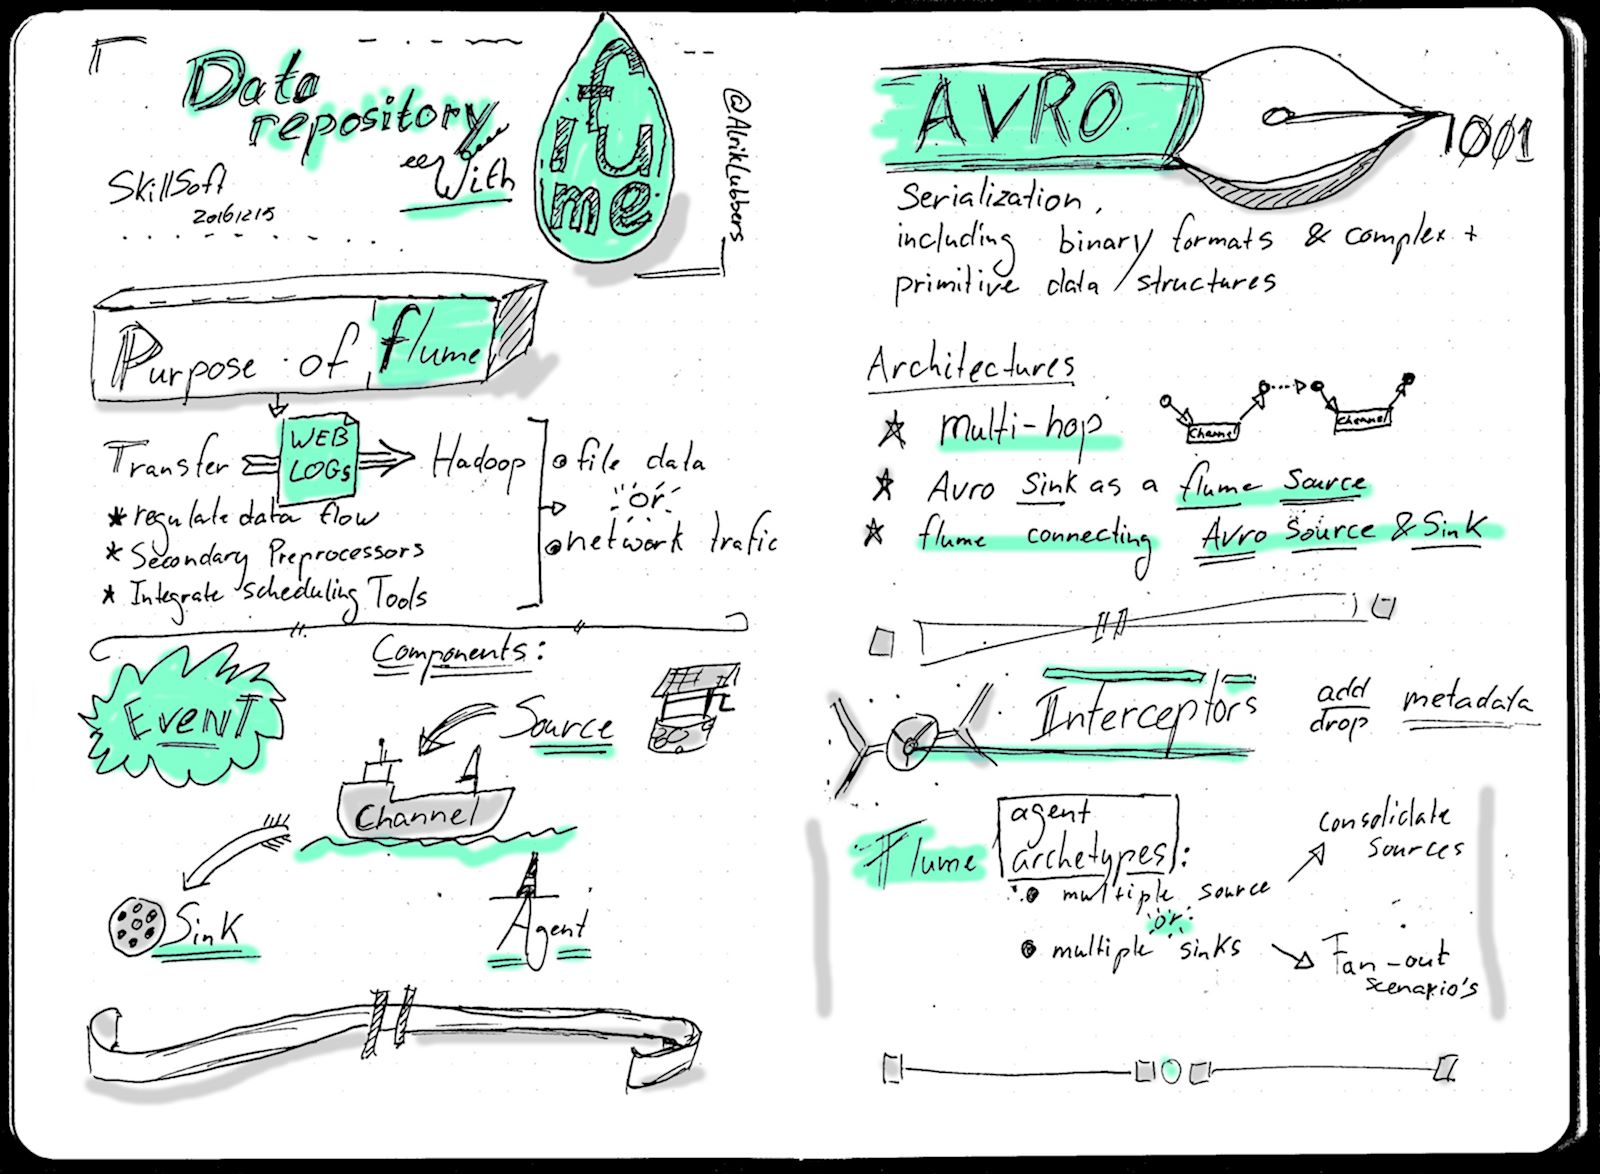 Data
repository
with
flume
SkillSoft
20161215
@AlrikLubbers
Purpose of flume
Transfer
WEB
LOGs
Hadoop
file data
or
network trafic
* regulate data flow
* Secondary Preprocessors
* Integrate scheduling Tools
Components:
EVENT
Source
Channel
Sink
Agent
AVRO
1001
Serialization,
including binary formats & complex +
primitive data structures
Architectures
multi-hop
Channel
Channel
Avro Sink as a flume Source
flume connecting Avro Source & Sink
Interceptors
add
drop
metadata
Flume
agent
archetypes:
multiple source
or
multiple sinks
consolidate
sources
Fan-out
scenario's